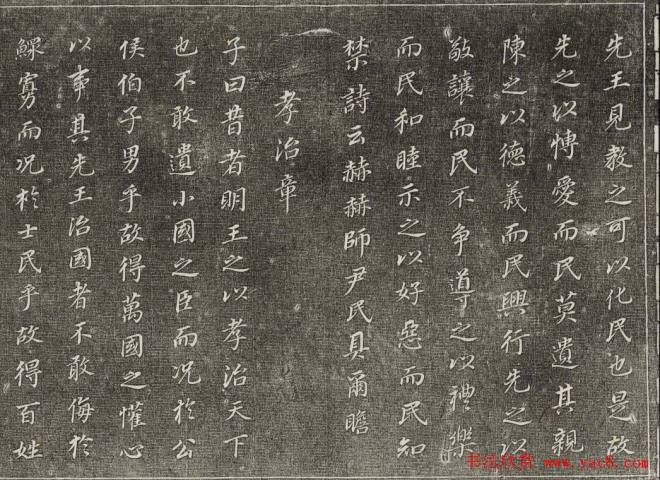 先王見教之可以化民也是故
先之以博愛而民莫遺其親
陳之以德義而民興行先之以
敬讓而民不争導之以禮樂
而民和睦示之以好惡而民知
禁詩云赫赫師尹民具爾瞻
孝治章
子曰昔者明王之以孝治天下
也不敢遺小國之臣而況於公
侯伯子男乎故得萬國之懽心
以事其先王治國者不敢侮於
鰥寡而況於士民乎故得百姓
书法欣赏 www.yac8.com